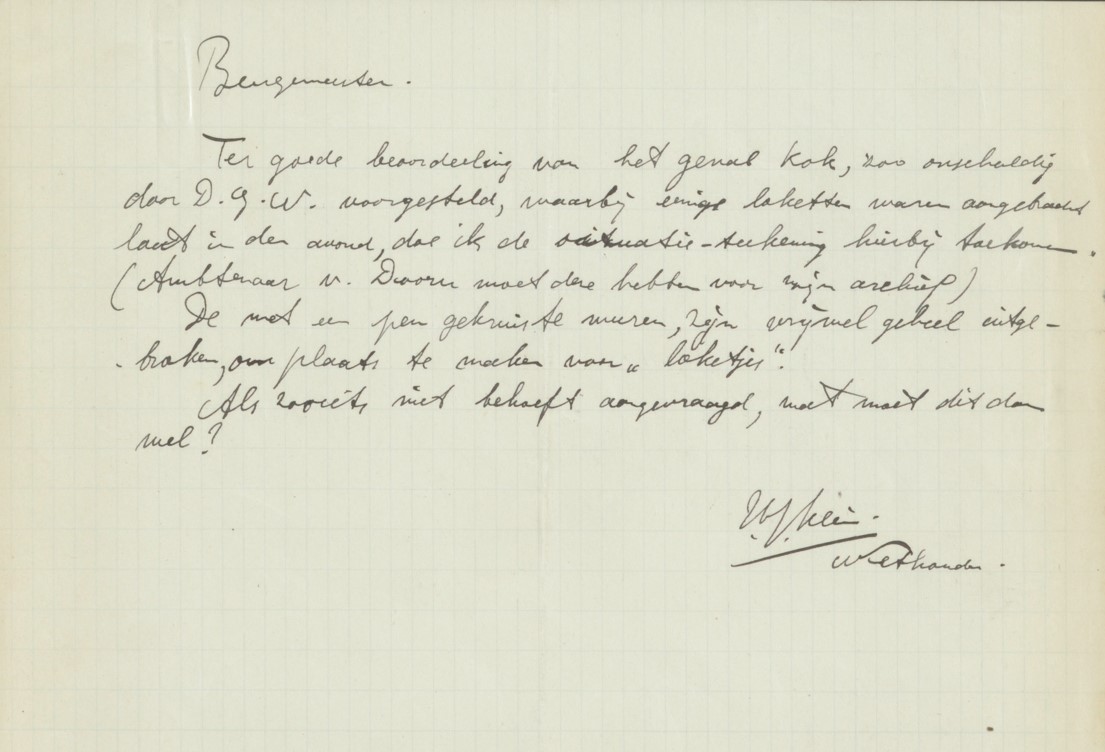 Burgemeester.
Ter goede beoordeeling van het geval Kok, zoo onschuldig
door D.G.W. voorgesteld, waarbij eenige loketten waren aangebracht
laat in den avond, doe ik de situatie-teekening hierbij toekomen.
(Ambtenaar v. Doorn moet deze hebben voor mijn archief)
De met een pen gekruiste muren, zijn vrijwel geheel uitge-
broken, om plaats te maken voor „loketjes".
Als zooiets niet behoeft aangevraagd, wat moet dit dan
wel?
Wethouder.